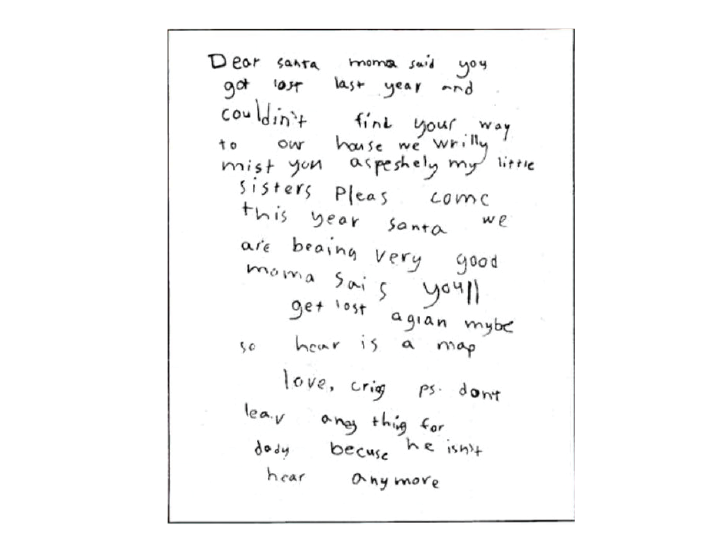 Dear santa moma said you
got lost last year and
couldin't find your way
to our house we wrilly
mist you aspeshely my little
sisters Pleas come
this year santa we
are beaing very good
moma sais you'll
get lost agian mybe
so hear is a map
love, crig ps. don't
leav any thing for
dady becuse he isn't
hear anymore